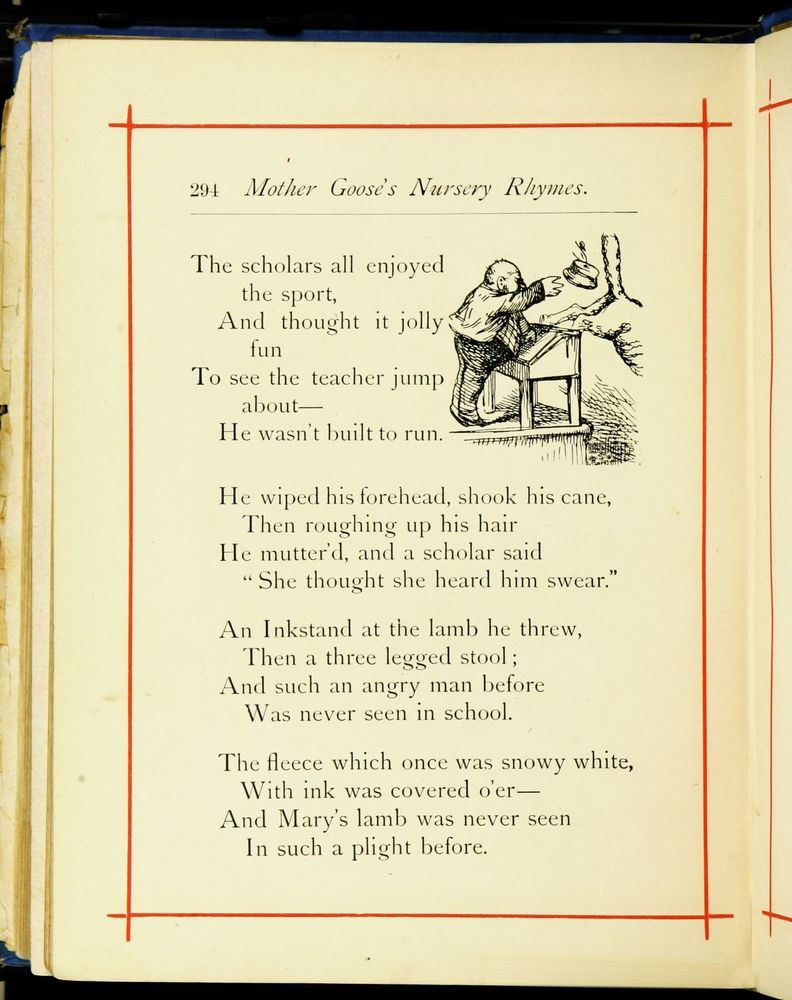 294 Mother Goose's Nursery Rhymes.
The scholars all enjoyed
the sport,
And thought it jolly
fun
To see the teacher jump
about—
He wasn't built to run.
He wiped his forehead, shook his cane,
Then roughing up his hair
He mutter'd, and a scholar said
“She thought she heard him swear.”
An Inkstand at the lamb he threw,
Then a three legged stool;
And such an angry man before
Was never seen in school.
The fleece which once was snowy white,
With ink was covered o'er—
And Mary's lamb was never seen
In such a plight before.